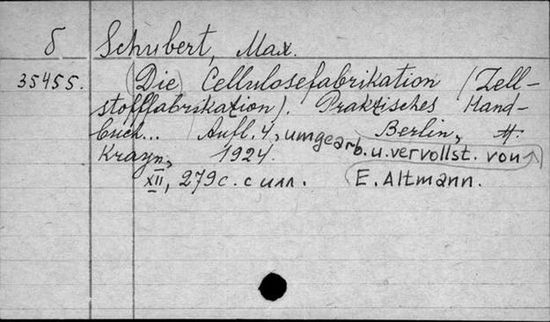 δ Schubert, Max.
35455. (Die) Cellulosefabrikation (Zell-
stofffabrikation). Praktisches Hand-
buch... Aufl. 4, umgearb. u. vervollst. von
E. Altmann. Berlin, M.
Krayn, 1924.
XII, 279 с. с илл.